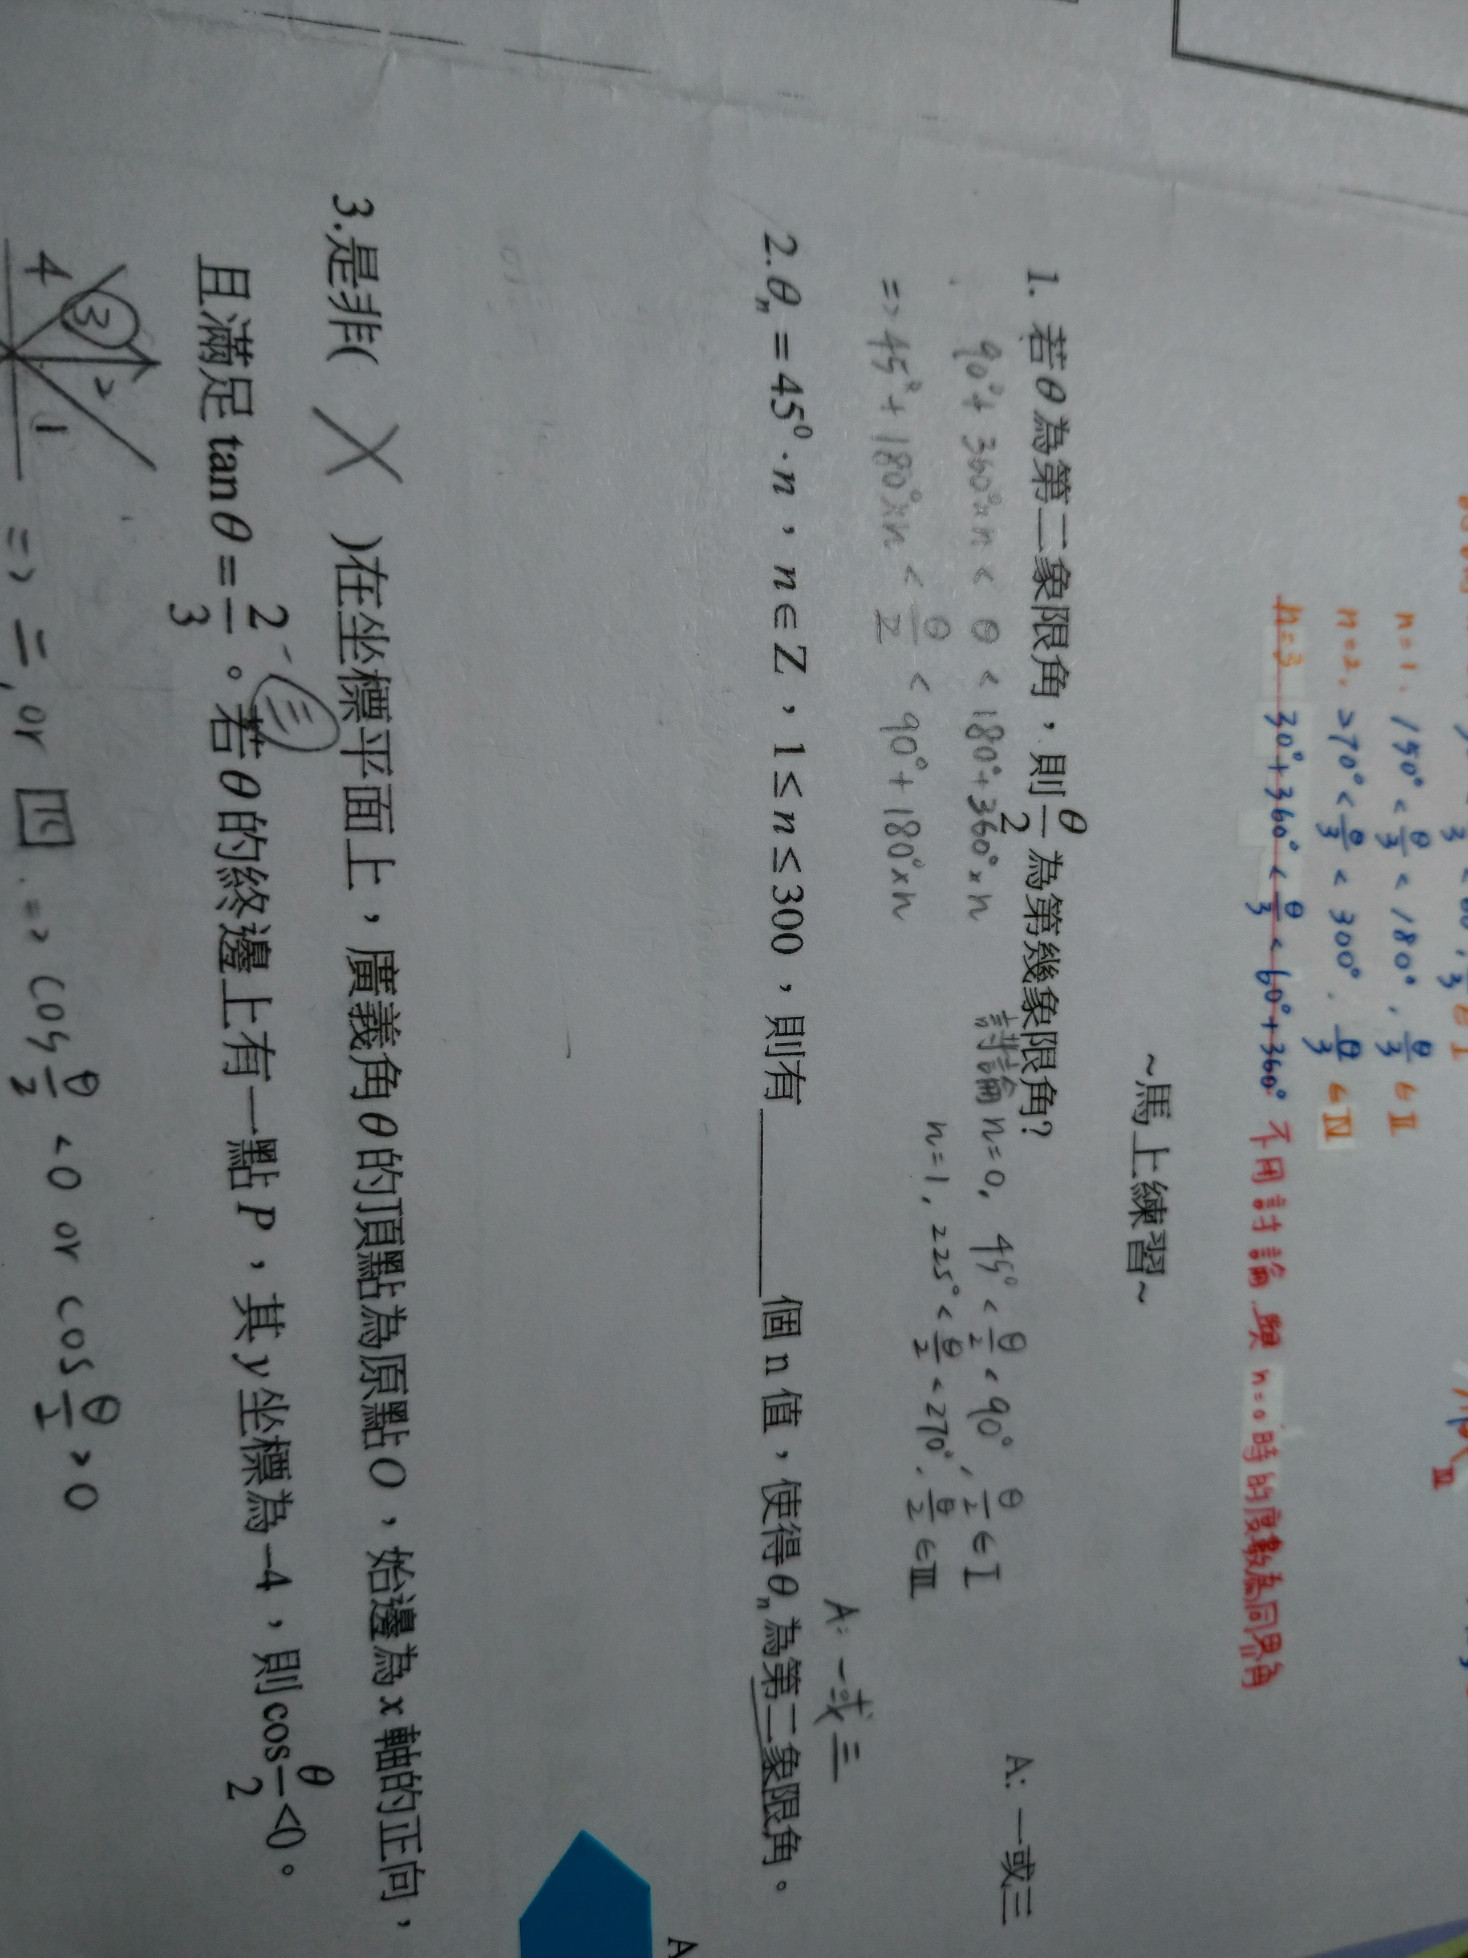 n=1, 150° < θ/3 < 180°, θ/3 ∈ II
n=2, 270° < θ/3 < 300°, θ/3 ∈ IV
n=3 30°+360° < θ/3 < 60°+360° 不用討論 與 n=0 時的度數為同界角
~馬上練習~
1. 若θ為第二象限角，則θ/2為第幾象限角？ A: 一或三
90°+360°×n < θ < 180°+360°×n 討論 n=0, 45° < θ/2 < 90°, θ/2 ∈ I
=> 45°+180°×n < θ/2 < 90°+180°×n n=1, 225° < θ/2 < 270°, θ/2 ∈ III
A: 一或三
2. θn = 45⁰·n，n∈Z，1≤n≤300，則有______個n值，使得θn為第二象限角。
A
3.是非( X )在坐標平面上，廣義角θ的頂點為原點O，始邊為x軸的正向，
且滿足tanθ=2/3。若θ的終邊上有一點P，其y坐標為−4，則cosθ/2<0。
三
4 3 2 1 => 二, or 四 => cos θ/2 <0 or cos θ/2 >0